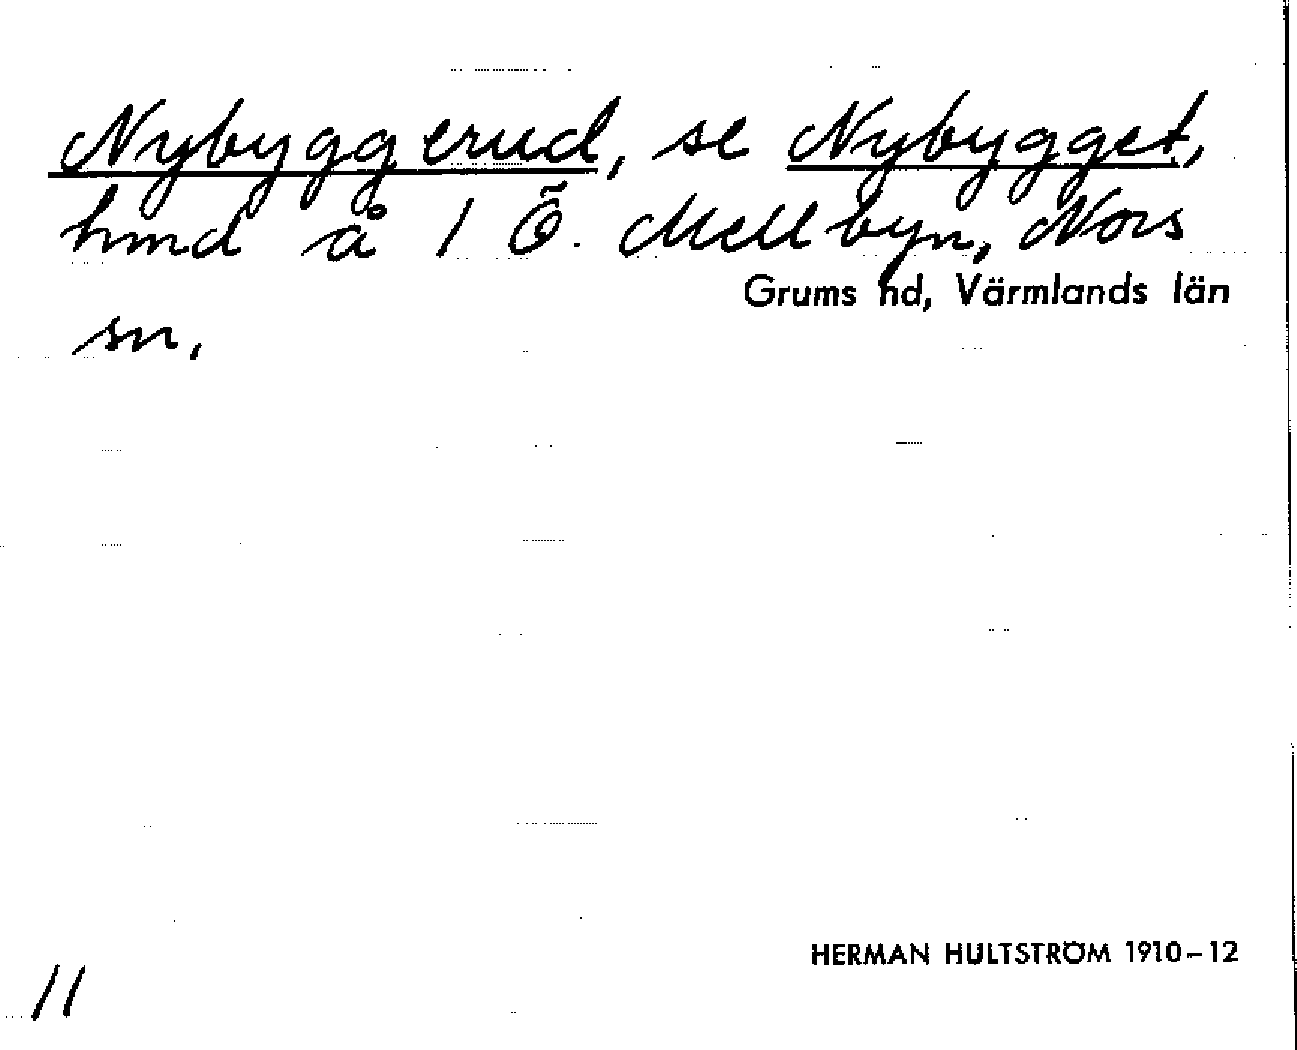 Nybyggerud, se Nybygget,
hmd å 1 Ö. Mellbyn, Nors
Grums hd, Värmlands län
sn.
HERMAN HULTSTRÖM 1910–12
11